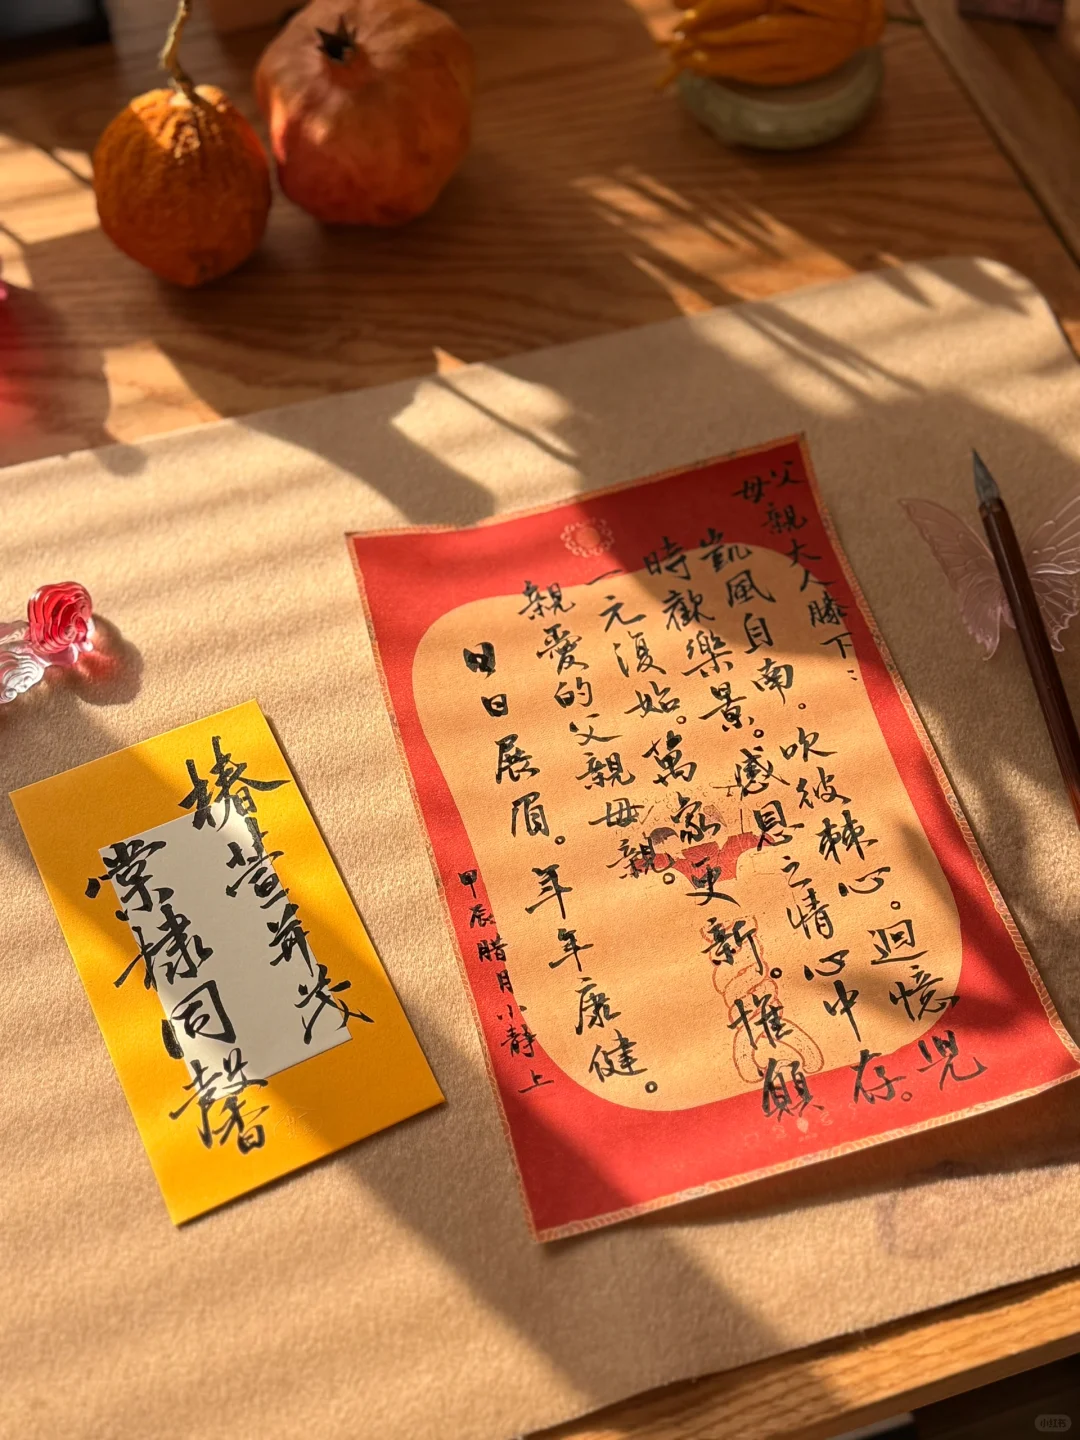 父母親大人膝下：
凱風自南。吹彼棘心。迴憶兒
時歡樂景。感恩之情心中存。
一元復始。萬家更新。惟願
親愛的父親母親。
日日展眉。年年康健。
甲辰腊月小静上
椿萱并茂
棠棣同馨
小红书